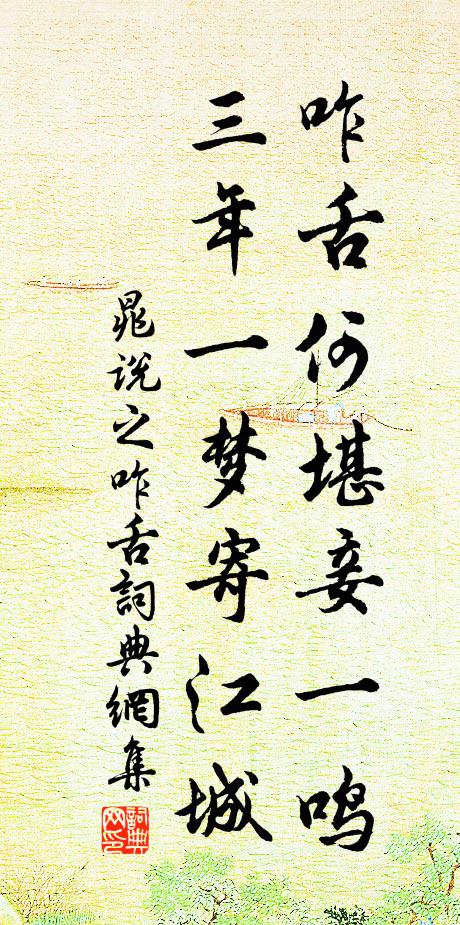 咋舌何堪妾一鸣
三年一梦寄江城
晁説之咋舌詞典網集
詞典网印